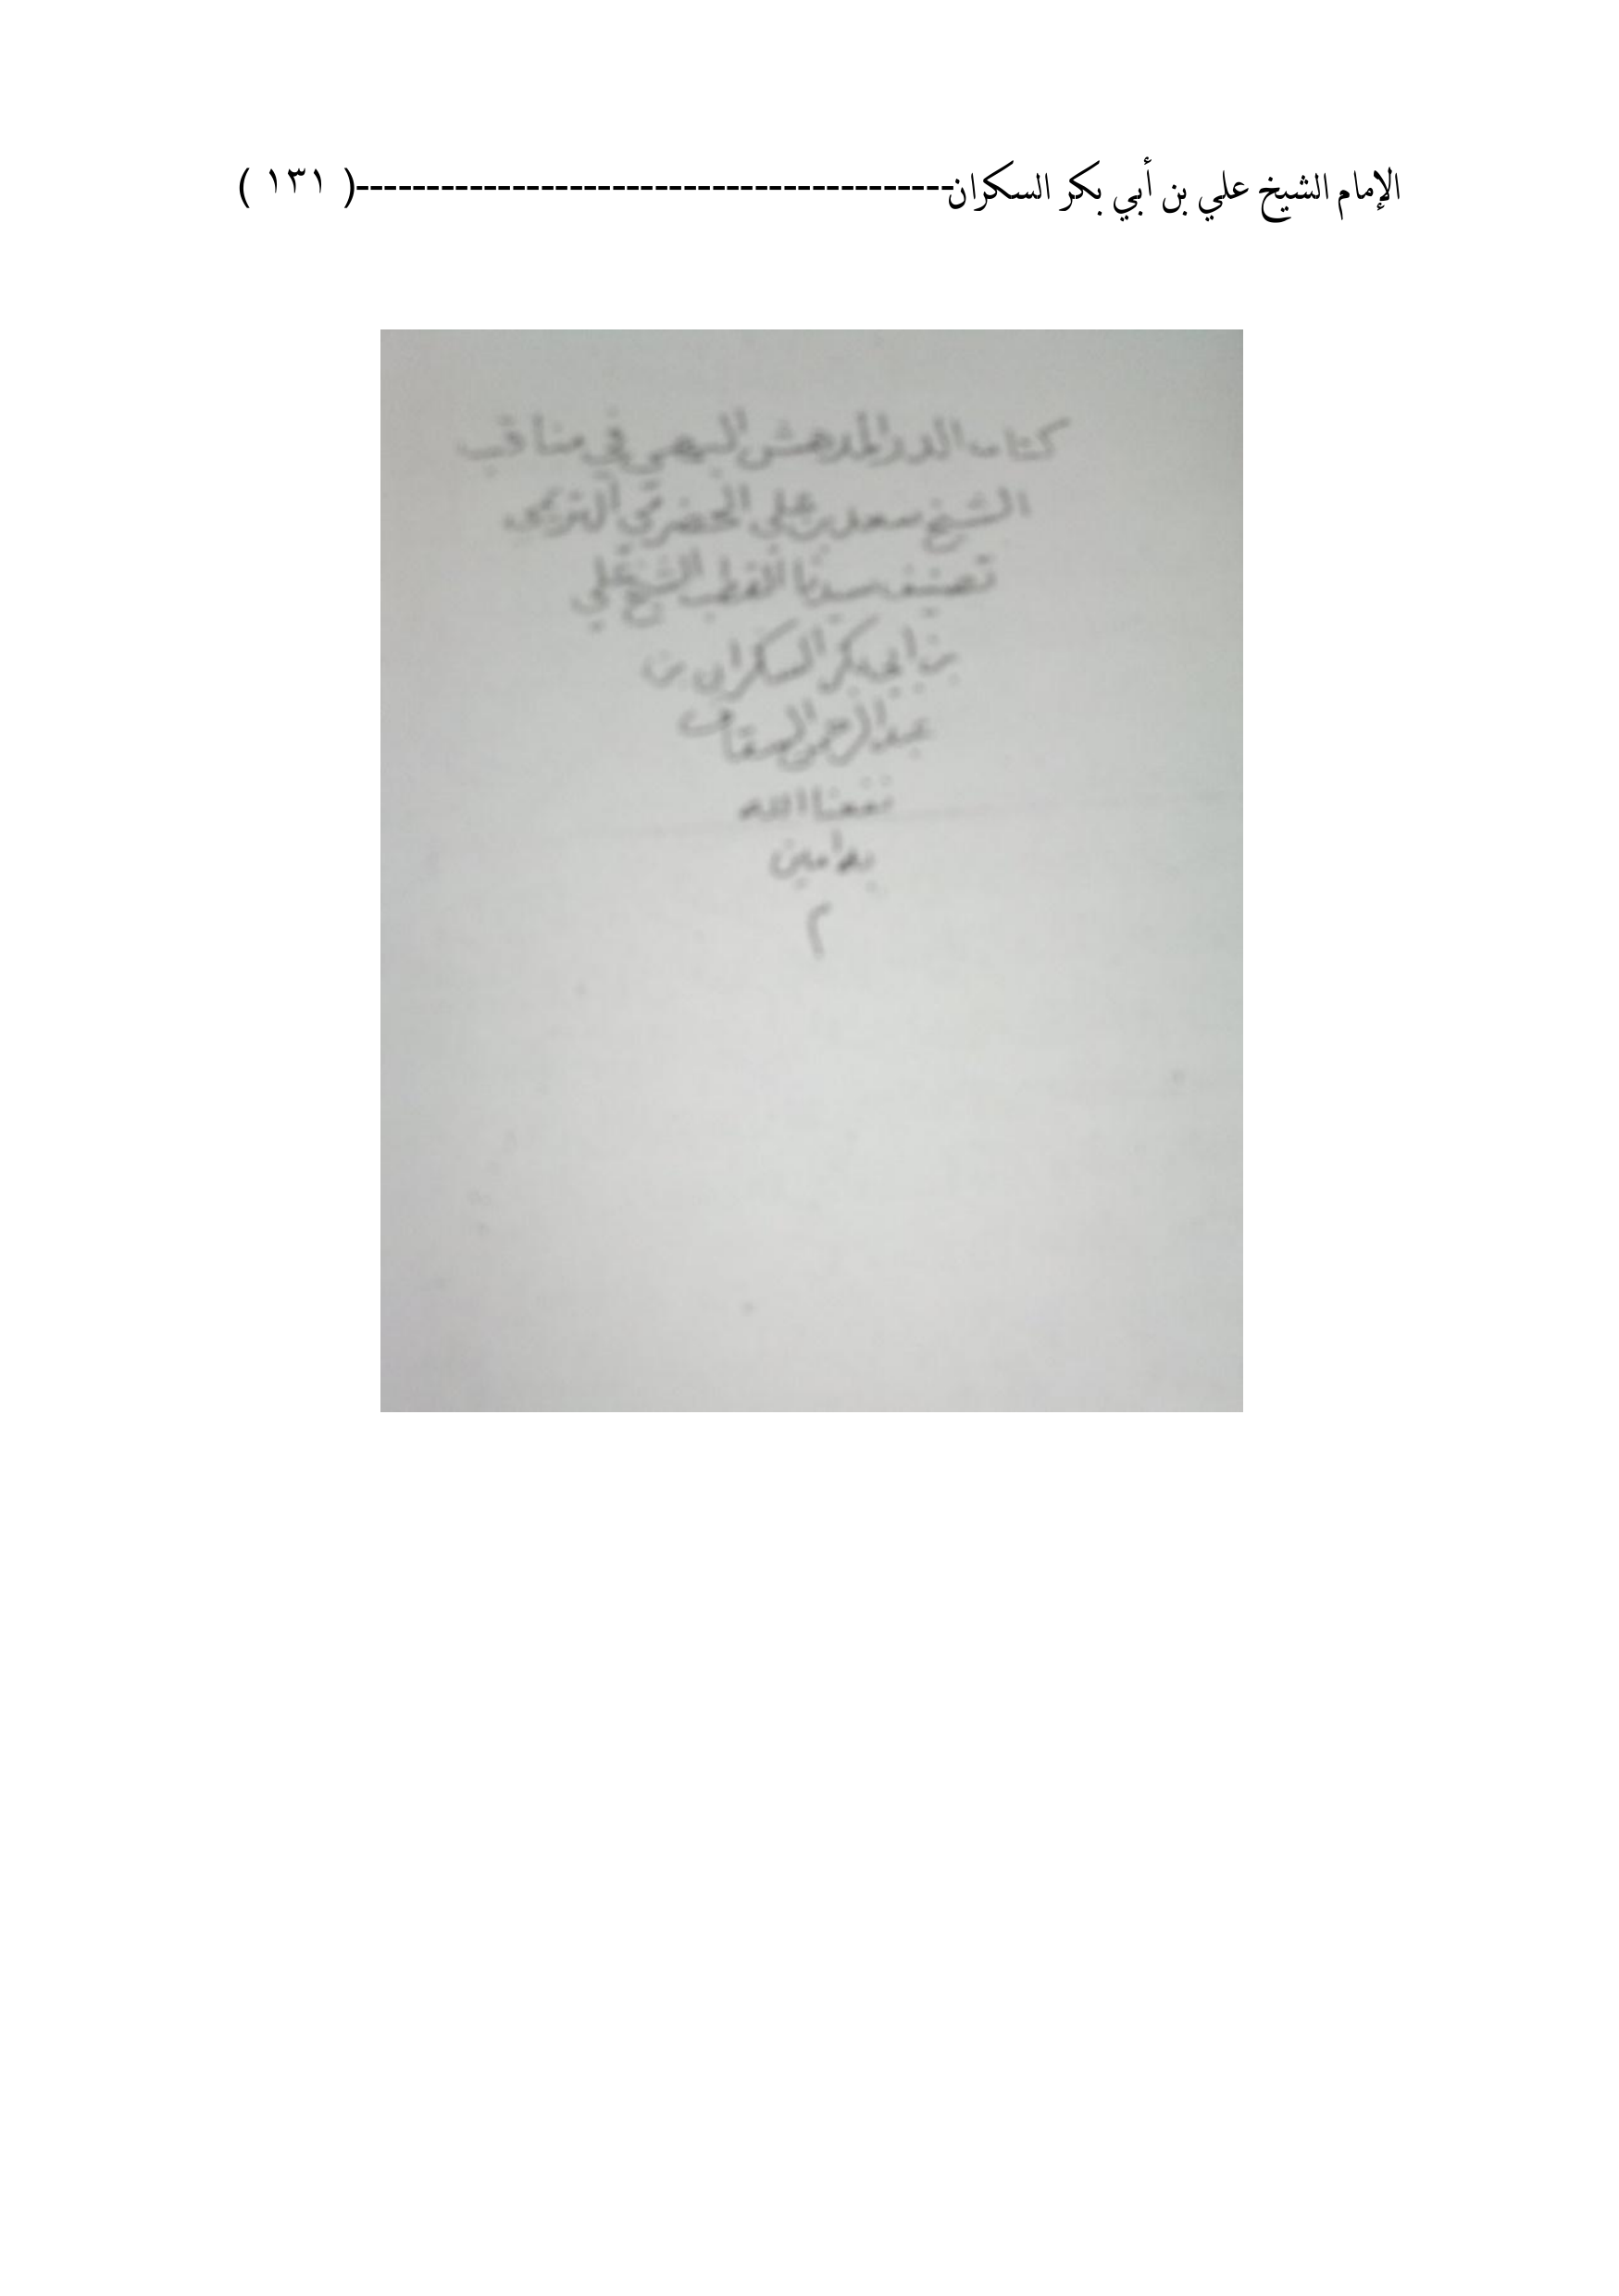 الإمام الشيخ علي بن أبي بكر السكران------------------------------------------( ١٣١ )
كتاب الدر المدهش البهي في مناقب
الشيخ سعد بن علي الحضرمي التريمي
تصنيف سيدنا القطب الشيخ علي
بن ابي بكر السكران بن
عبد الرحمن السقاف
نفعنا الله
به امين
م